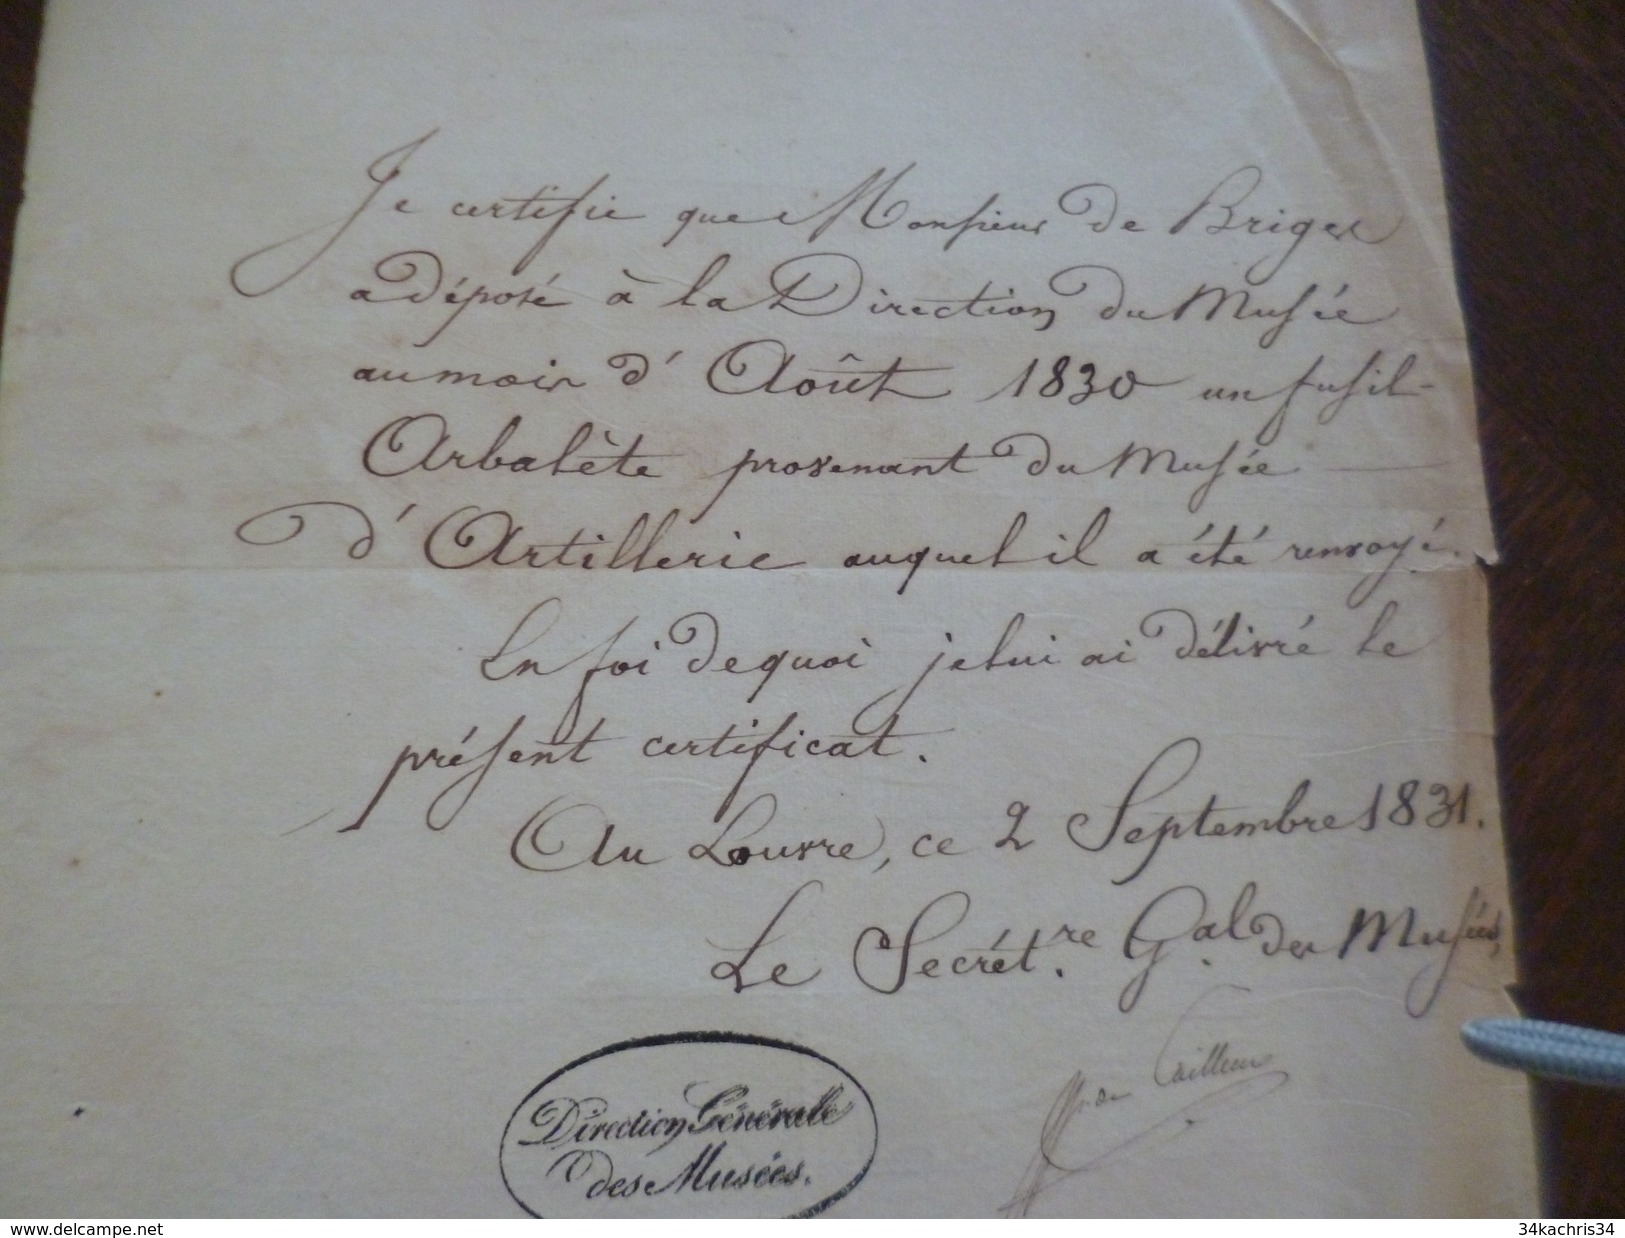 Je certifie que Monsieur de Briges
a déposé à la Direction du Musée
au mois d'Août 1830 un fusil-
Arbalète provenant du Musée
d'Artillerie auquel il a été renvoyé.
En foi de quoi je lui ai délivré le
présent certificat.
Au Louvre, ce 2 Septembre 1831.
Le Secrét.re G.al des Musées,
de Cailleux
Direction Générale
des Musées.
www.delcampe.net
34kachris34